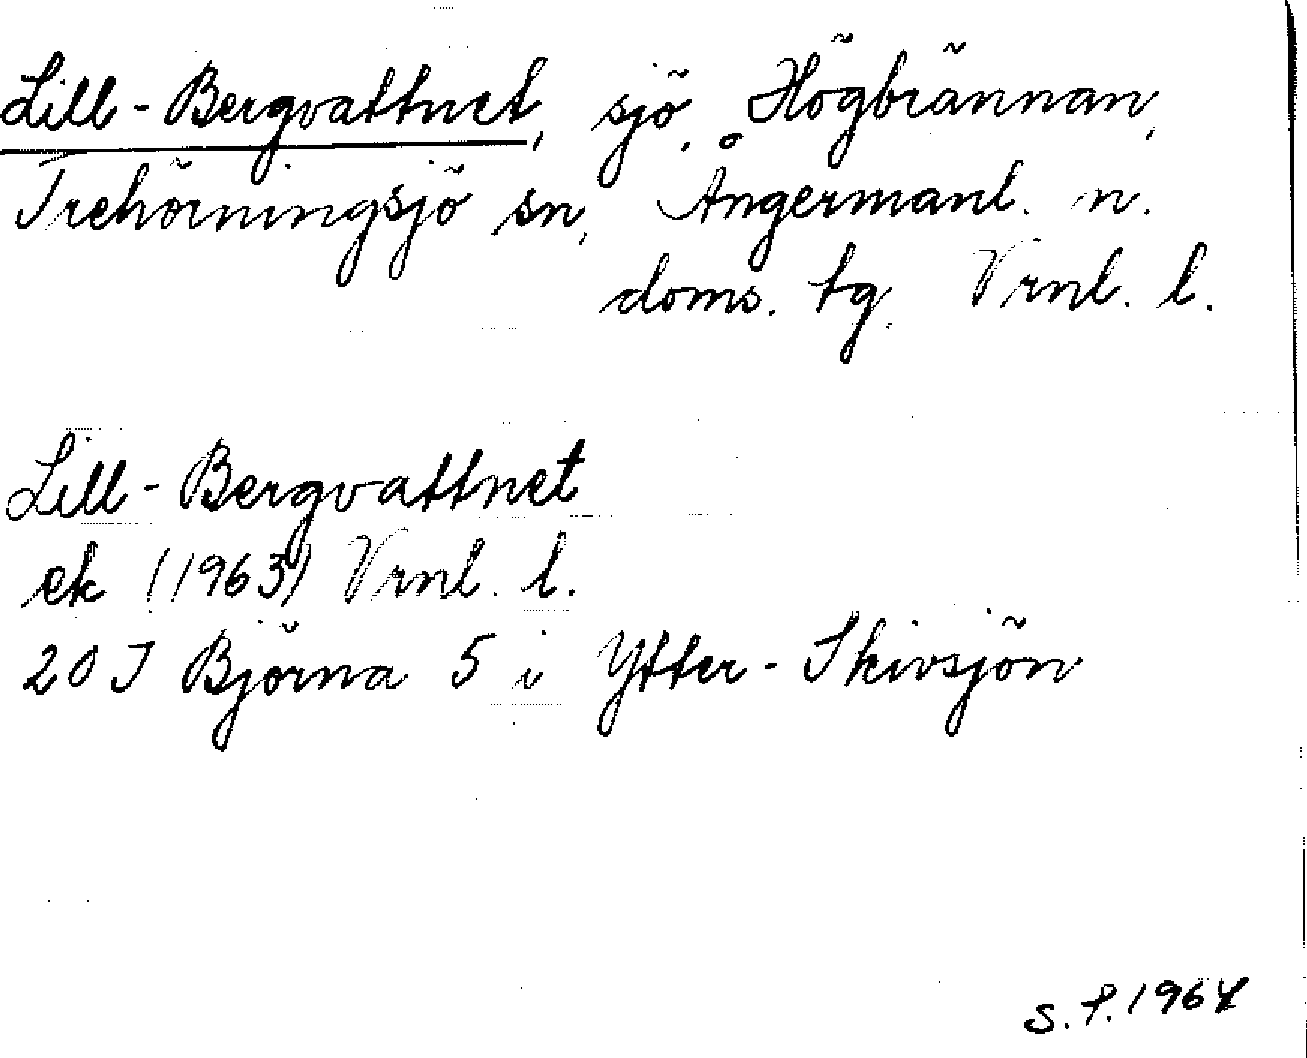 Lill-Bergvattnet, sjö, Högbrännan,
Trehörningsjö sn, Ångermanl. n.
doms. tg. Vrnl. l.
Lill-Bergvattnet
ek (1963) Vrnl. l.
20 J Björna 5 i Ytter-Skivsjön
S.P. 1964